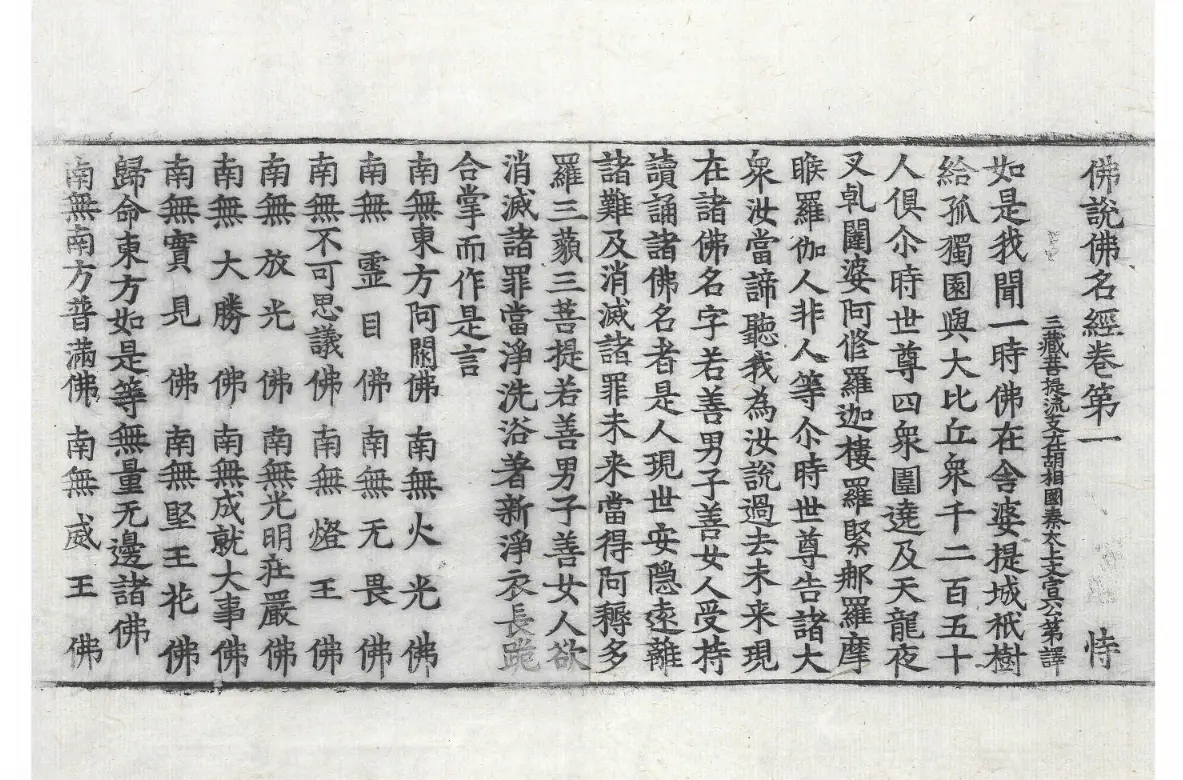 佛說佛名經卷第一 恃
三藏菩提流支在胡相國秦太上文宣公第譯
如是我聞一時佛在舍婆提城祇樹
給孤獨園與大比丘衆千二百五十
人俱尒時世尊四衆圍遶及天龍夜
叉乹闥婆阿脩羅迦樓羅緊那羅摩
睺羅伽人非人等尒時世尊告諸大
衆汝當諦聽我為汝說過去未来現
在諸佛名字若善男子善女人受持
讀誦諸佛名者是人現世安隱遠離
諸難及消滅諸罪未来當得阿耨多
羅三藐三菩提若善男子善女人欲
消滅諸罪當淨洗浴著新淨衣長跪
合掌而作是言
南無東方阿閦佛 南無火光佛
南無靈目佛 南無无畏佛
南無不可思議佛 南無燈王佛
南無放光佛 南無光明莊嚴佛
南無大勝佛 南無成就大事佛
南無實見佛 南無堅王花佛
歸命東方如是等無量无邊諸佛
南無南方普滿佛 南無威王佛